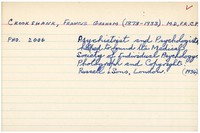 CROOKSHANK, FRANCIS GRAHAM (1873-1933) M.D., F.R.C.P.
POR. 2006 Psychiatrist and Psychologist
helped to found the Medical
Society of Individual Psychology
Photograph and Copyright
Russell & Sons, London.
(1930)